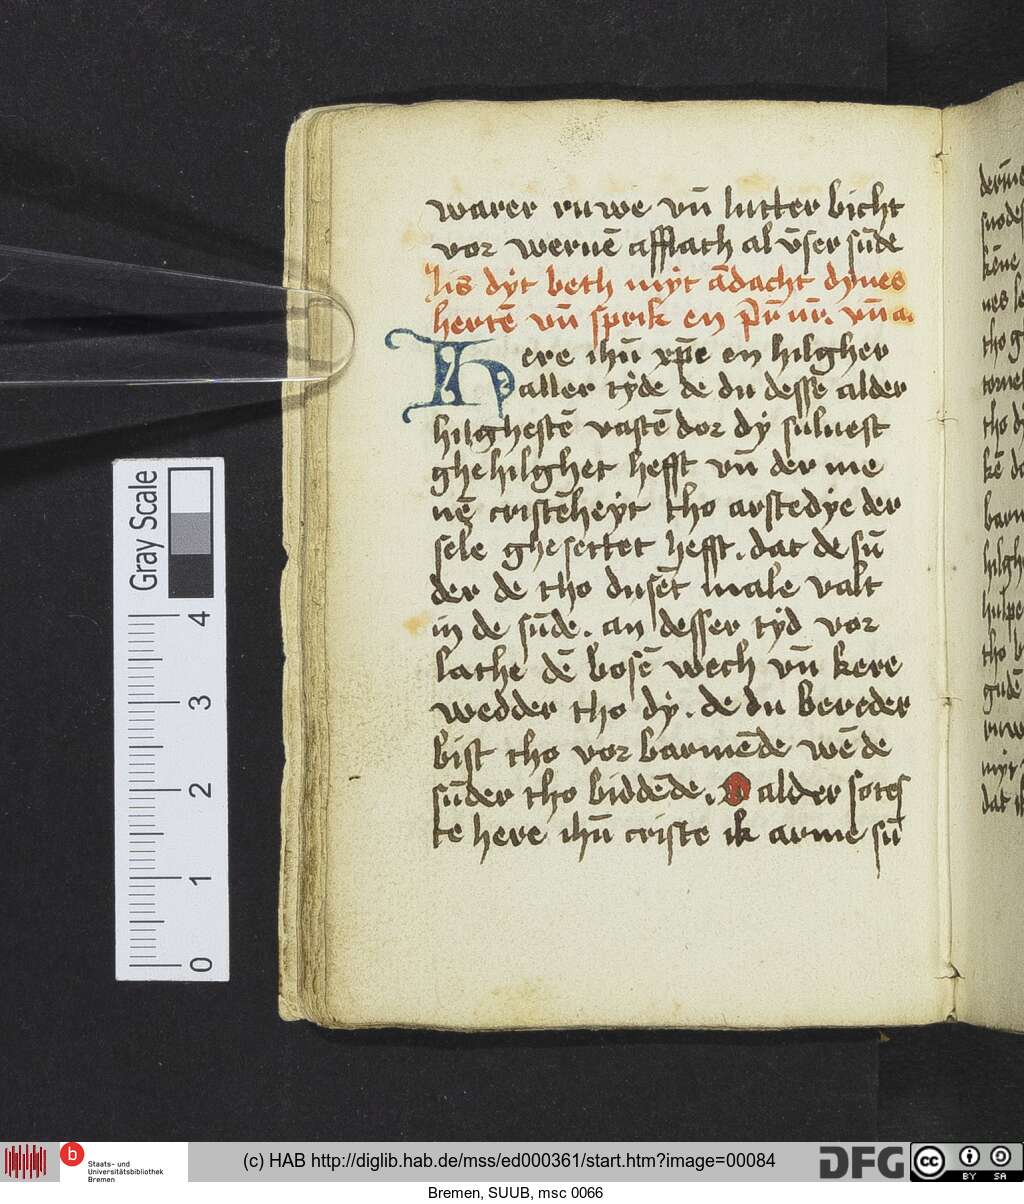 warer ruwe vn̄ lutter bicht
vor wernē afflath al v̄ser sūde
lis dyt beth myt ādacht dynes
hertē vn̄ sprik en p̄r nr̄. vn̄ a.
Here ihū xp̄e en hilgher
aller tyde de du desse alder
hilghestē vastē dor dy suluest
ghehilghet hefft vn̄ der me
nē cristēheyt tho arstedye der
sele ghesettet hefft. dat de sū
der de tho dusēt male valt
in de sūde. an desser tyd vor
lathe dē bosē wech vn̄ kere
wedder tho dy. de du bereder
bist tho vorbarmēde wē de
sūder tho biddēde. O alder sotes
te here ihū criste ik arme sū
Gray Scale
4
3
2
1
0
Staats- und
Universitätsbibliothek
Bremen
(c) HAB http://diglib.hab.de/mss/ed000361/start.htm?image=00084
DFG
cc BY SA
Bremen, SUUB, msc 0066